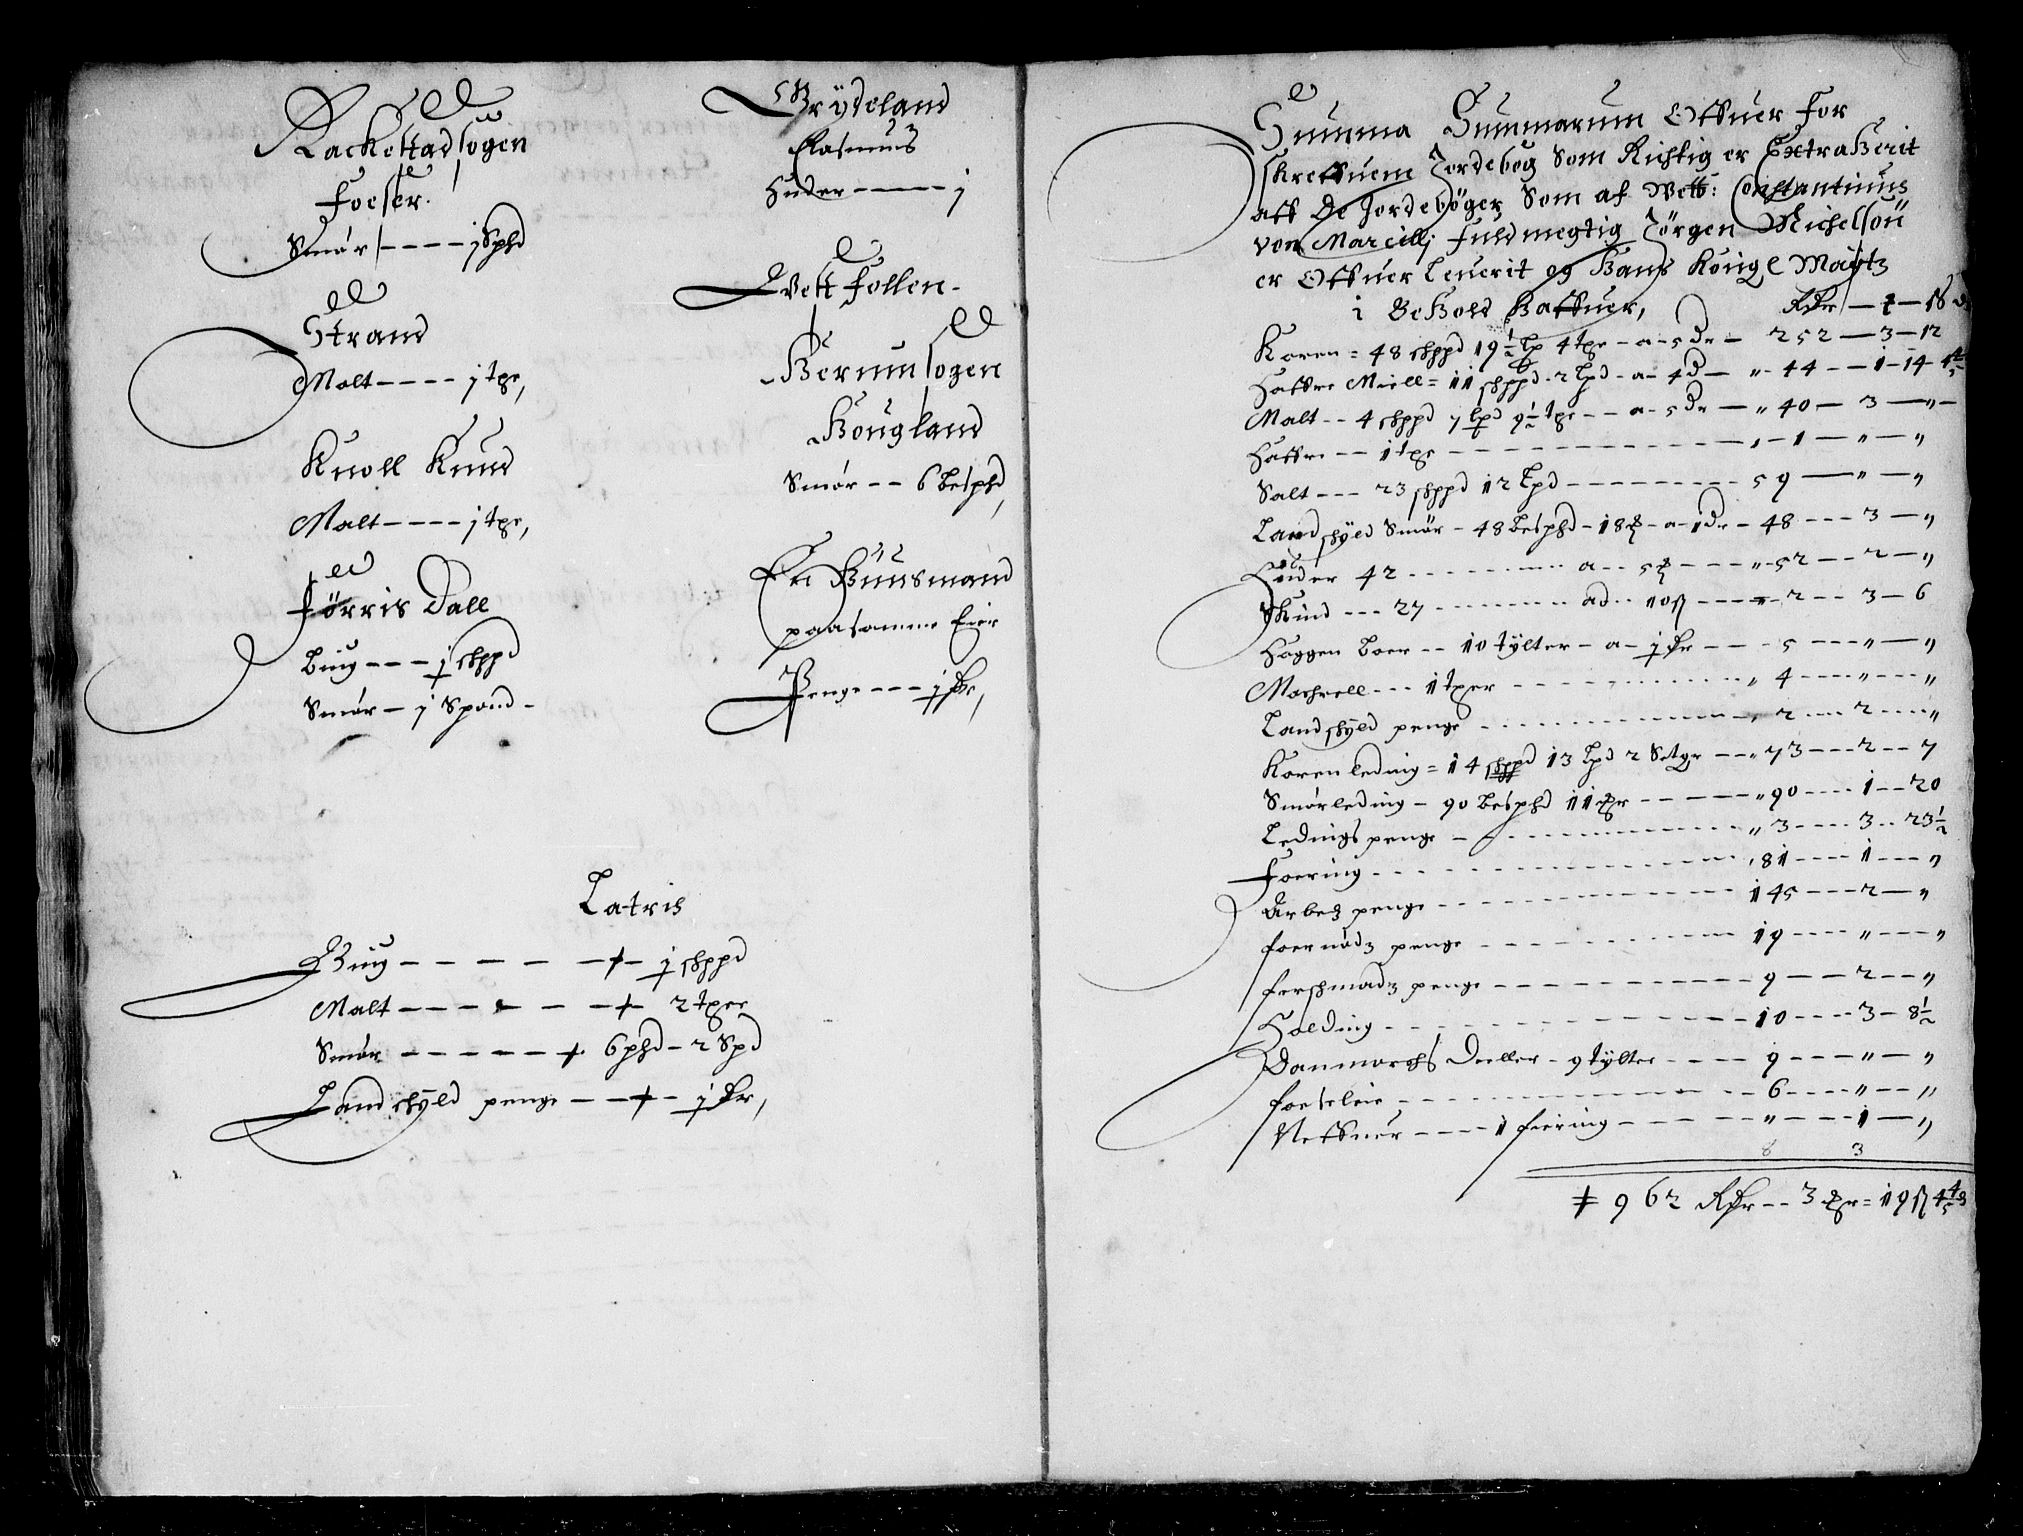 Rackestadsogen
Foeser.
Smør ---- j Sphd
Strand
Malt ---- j tøe,
Knoll Knud
Malt ---- j tøe,
Førris Dall
Biug --- j skppd
Smør - j Spand -
Grÿdeland
Elasmus
Huder ---- j
Vett Follen -
Berumsogen
Hougland
Smør -- 6 Besphd
En Huusmand
paa samme Eier
Penge --- j dr,
Latris
Biug ------ j skppd
Malt ------ 2 tøer
Smør ------ 6 phd - 2 Spd
Landskÿld penge ---- j dr,
Summa Summarum Offuer for
skreffuem Jordebog Som Richtig er Extraherit
aff De Jordebøger Som af Wett: Constantinus
von Marcellj Fuldmegtig Jörgen Michelsøn
er Offuer leuerit og Hans Kongl Maÿtz
i Behold haffuer, Rdr - - ß
Koren = 48 skppd 19½ Lp 4 tøe - a - 5 dr - 252 - 3 - 12
Haffre Miell = 11 skppd - 2 Lpd - a - 4 D - " 44 - 1 - 14 - 4 4/5
Malt -- 4 skppd 7 Lpd 9½ tøe -- a - 5 dr - " 40 - 3 - " -
Haffre -- 1 tøe ---- 1 - " - "
Salt --- 23 skppd 12 Lpd ---- 59 - " - "
Landskÿld Smør - 48 Besphd - 18 - a - 1 Dr - 48 --- 3 - "
Huder 42 ---- a -- 5 --- " 52 -- 2 - "
Skind --- 27 ---- ad -- 10 ß ---- 2 -- 3 - 6
Haggen Boer -- 10 tÿlter - a - j dr --- 5 --- " - "
Machrell --- 1 tøer ---- " 4 --- " -- "
Landskÿld penge ---- 2 --- 2 --- "
Korenleding = 14 skppd 13 Lpd 2 Setge -- " 73 --- 2 -- 7
Smørleding - 90 Besphd 11 ---- " 90 --- 1 -- 20
Ledings penge ---- " 3 --- 3 -- 23½
Foering ---- 81 --- 1 -- "
Arbez penge ---- 145 --- 2 - "
foernødz penge ---- 19 --- " --- "
ferschmadz penge ---- 9 -- 2 -- "
Holding ---- 10 --- 3 - 8½
Danmarchs Deller - 9 tÿlter ---- 9 --- " - "
foeseleie ---- 6 --- " -- "
Neffuer ---- 1 fiering ---- " --- 1 - "
8 3
962 Rdr -- 3 = 19 ß 4 4/5